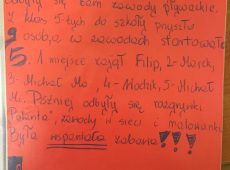 odbyły się tam zawody pływackie.
Z klas 5-tych do szkoły
osoba w zawodach startowała
5. 1 miejsce zajął Filip, 2-Marek,
3-Michał Mo, 4-Władzik, 5-Michał
M. Później odbyły się rozgrywki
zawody w sieci i malowanki.
Była wspaniała zabawa!!!